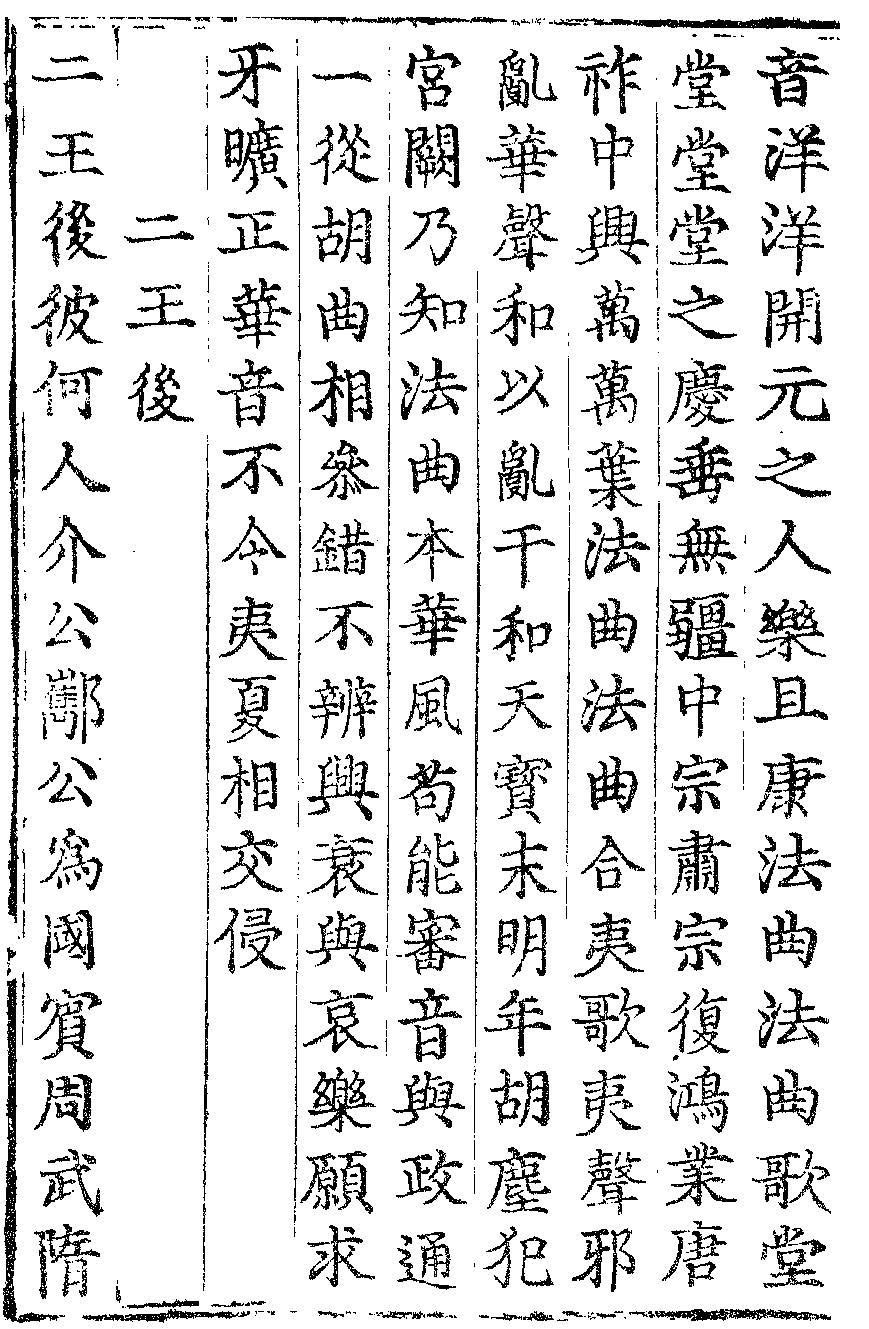 音洋洋開元之人樂且康法曲法曲歌堂
堂堂堂之慶垂無疆中宗肅宗復鴻業唐
祚中興萬萬葉法曲法曲合夷歌夷聲邪
亂華聲和以亂干和天寶末明年胡塵犯
宮闕乃知法曲本華風苟能審音與政通
一從胡曲相參錯不辨興衰與哀樂願求
牙曠正華音不令夷夏相交侵
二王後
二王後彼何人介公酅公爲國賓周武隋